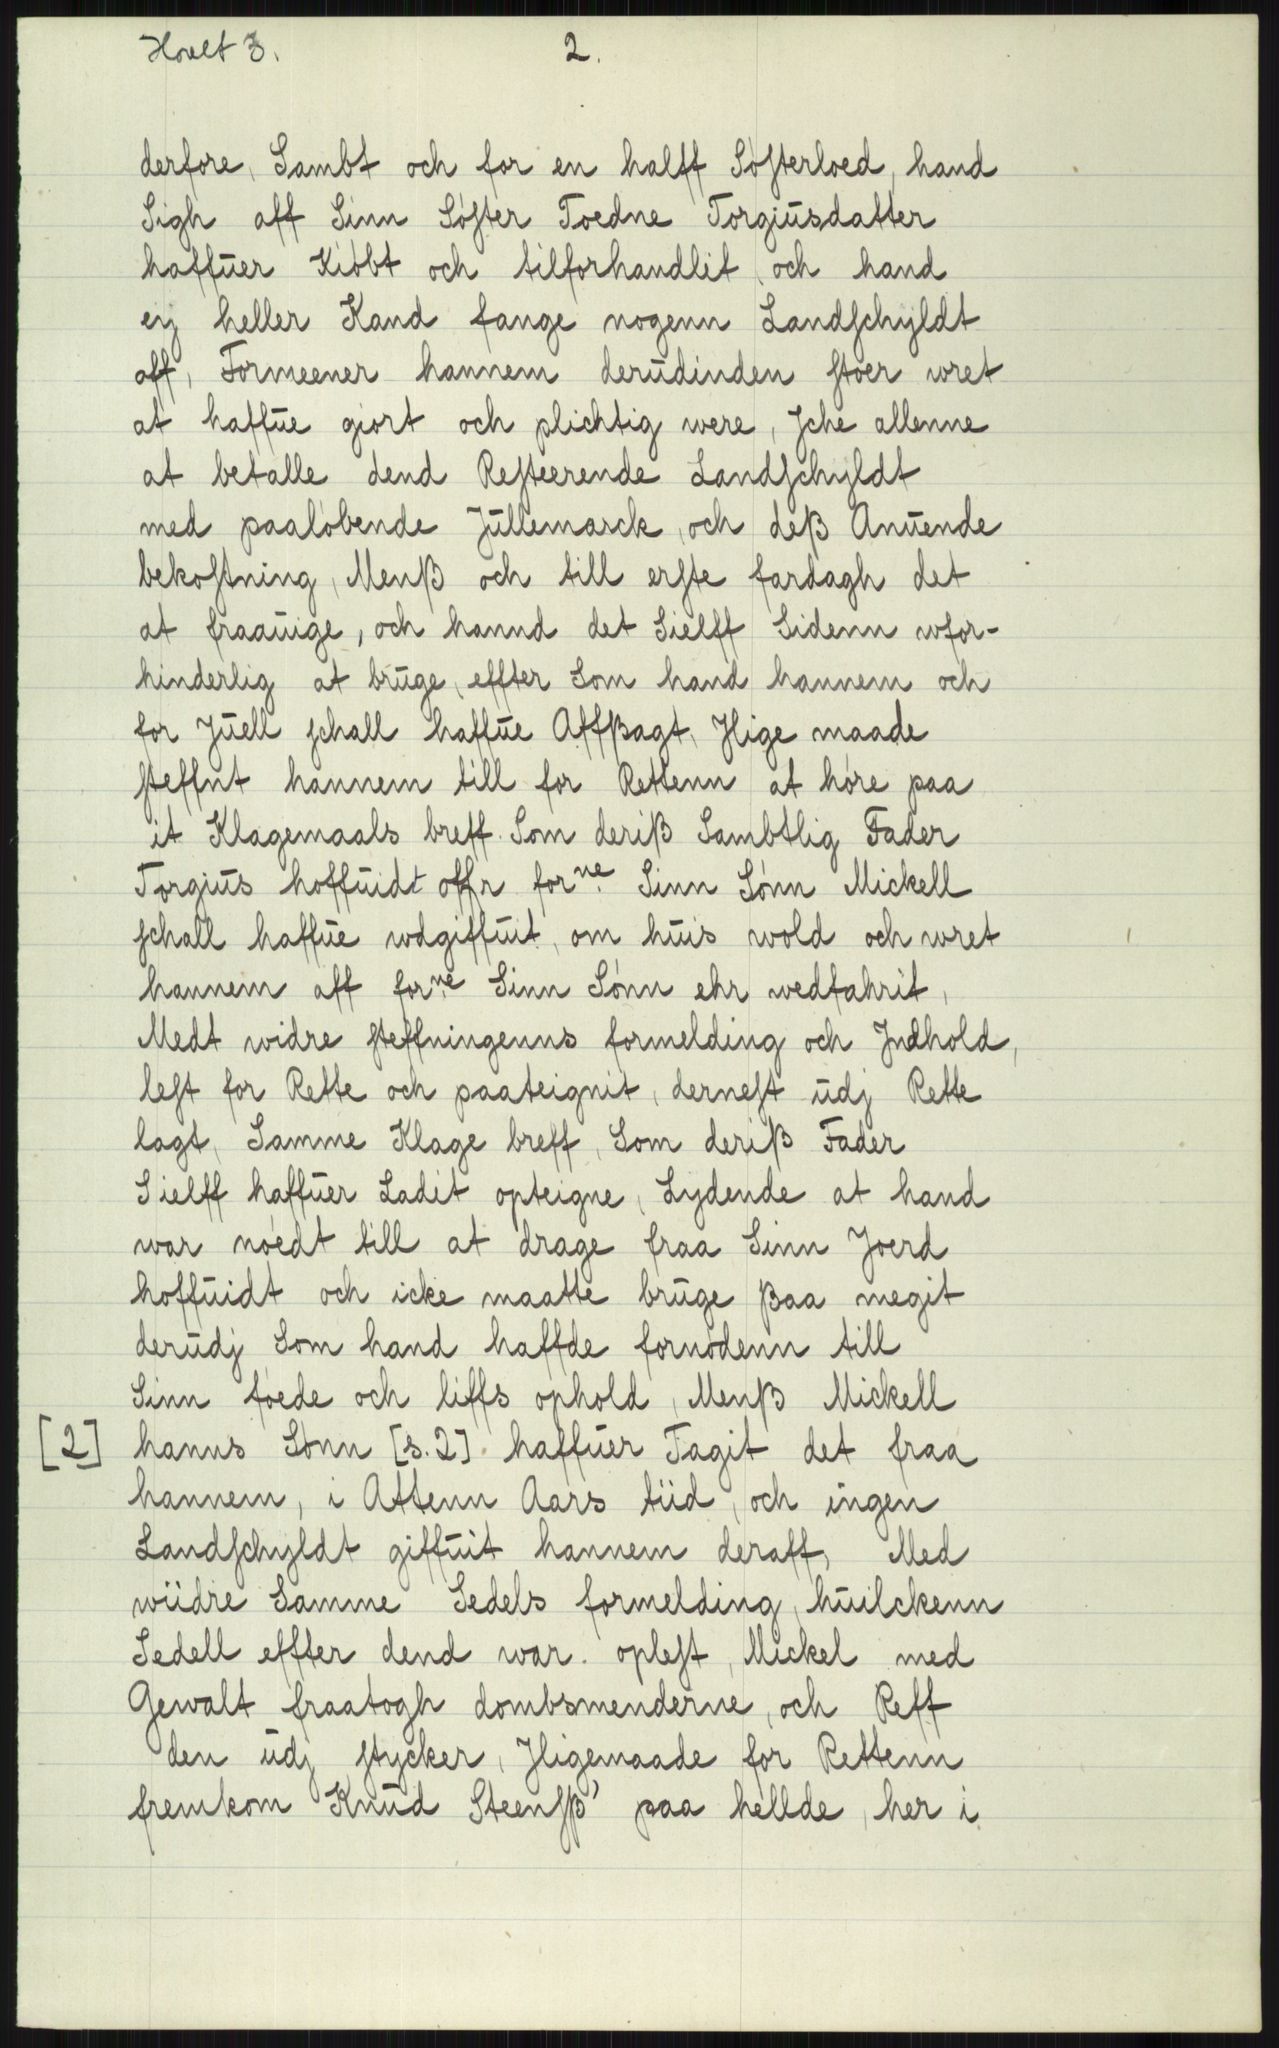 Hovlt 3.
2.
derfore, Sambt och for en halff Søsterloed, hand
Sigh aff Sinn Søster Toedne Torgiusdatter
haffuer Kiøbt och tilforhandlit, och hand
eij heller Kand fange nogenn Landschyldt
aff, Formeener hannem derudinden stoer wret
at haffue giort och plichtig were, Iche allenne
at betalle dend Resteerende Landschyldt
med paaløbende Jullemarck, och deß Anuende
bekostning, Menß och till erste fardagh det
at fraauige, och hannd det Sielff Sidenn wfor-
hinderlig at bruge, effter Som hand hannem och
for Juell schall haffue Affßagt, Jlige maade
steffnt hannem till for Rettenn at høre paa
it Klagemaals breff Som deriß Sambtlig Fader
Torgius hoffuidt offr forne. Sinn Sønn Mickell
schall haffue wdgiffuit, om huis wold och wret
hannem aff forne. Sinn Sønn ehr wedfahrit,
Medt widre steffningenns formelding och Indhold,
lest for Rette och paateignit, dernest udj Rette
lagt, Samme Klage breff, Som deriß Fader
Sielff haffuer Ladit opteigne, Lydende at hand
war nøedt till at drage fraa Sinn Joerd
hoffuidt och icke maatte bruge ßaa megit
derudj Som hand haffde fornødenn till
Sinn føede och liffs ophold, Menß Mickell
[2] hanns Sønn [s. 2] haffuer Tagit det fraa
hannem, i Attenn Aars tiid, och ingen
Landschyldt giffuit hannem deraff, Med
wiidre Samme Sedels formelding, huilckenn
Sedell effter dend war oplest, Mickel med
Gewalt fraatogh dombsmenderne, och Reff
den udj stycker, Jligemaade for Rettenn
fremkom Knud Steensß' paa hellde, her i